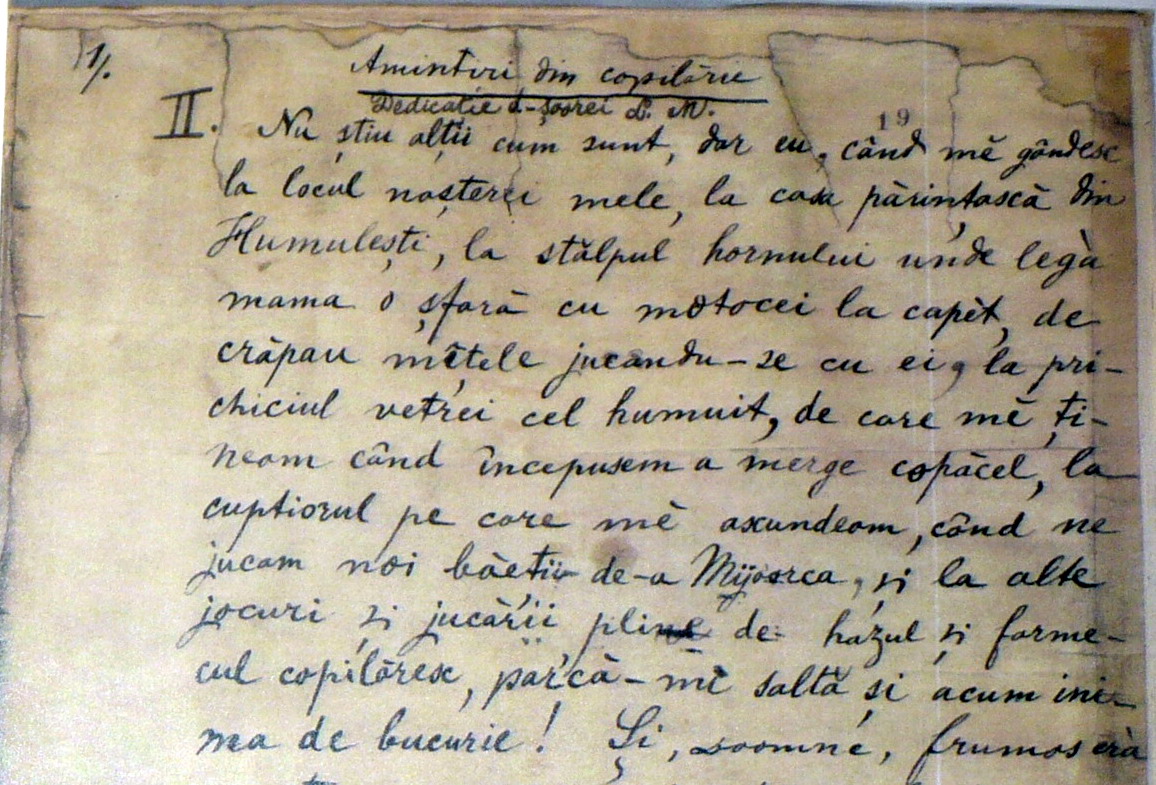 1/.
Amintiri din copilărie
Dedicație d-șoarei L. M.
19
II. Nu știu alții cum sunt, dar eu, când mĕ gândesc
la locul nașterei mele, la casa părintască din
Humulești, la stâlpul hornului unde legà
mama o șfară cu motocei la capĕt, de
crăpau mâțele jucandu-se cu ei, la pri-
chiciul vetrei cel humuit, de care mĕ ți-
neam când începusem a merge copăcel, la
cuptiorul pe care mĕ ascundeam, când ne
jucam noi băețiĭ de-a Mijoarca, și la alte
jocuri și jucării pline de hazul și farme-
cul copilăresc, parcă-mĭ saltă și acum ini-
ma de bucurie! Și, Doamne, frumos erà